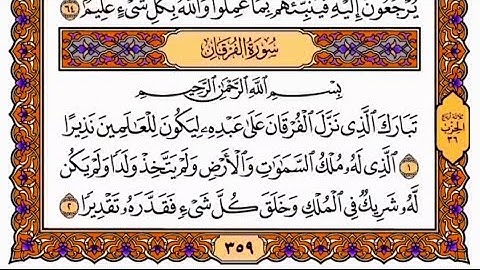 يُرْجَعُونَ إِلَيْهِ فَيُنَبِّئُهُم بِمَا عَمِلُوا۟ وَٱللَّهُ بِكُلِّ شَىْءٍ عَلِيمٌۢ ٦٤
سُورَةُ الْفُرْقَانِ
بِسْمِ ٱللَّهِ ٱلرَّحْمَٰنِ ٱلرَّحِيمِ
تَبَارَكَ ٱلَّذِى نَزَّلَ ٱلْفُرْقَانَ عَلَىٰ عَبْدِهِۦ لِيَكُونَ لِلْعَٰلَمِينَ نَذِيرًا
١ ٱلَّذِى لَهُۥ مُلْكُ ٱلسَّمَٰوَٰتِ وَٱلْأَرْضِ وَلَمْ يَتَّخِذْ وَلَدًا وَلَمْ يَكُن
لَّهُۥ شَرِيكٌ فِى ٱلْمُلْكِ وَخَلَقَ كُلَّ شَىْءٍ فَقَدَّرَهُۥ تَقْدِيرًا ٢
الحزب
٣٦
٣٥٩